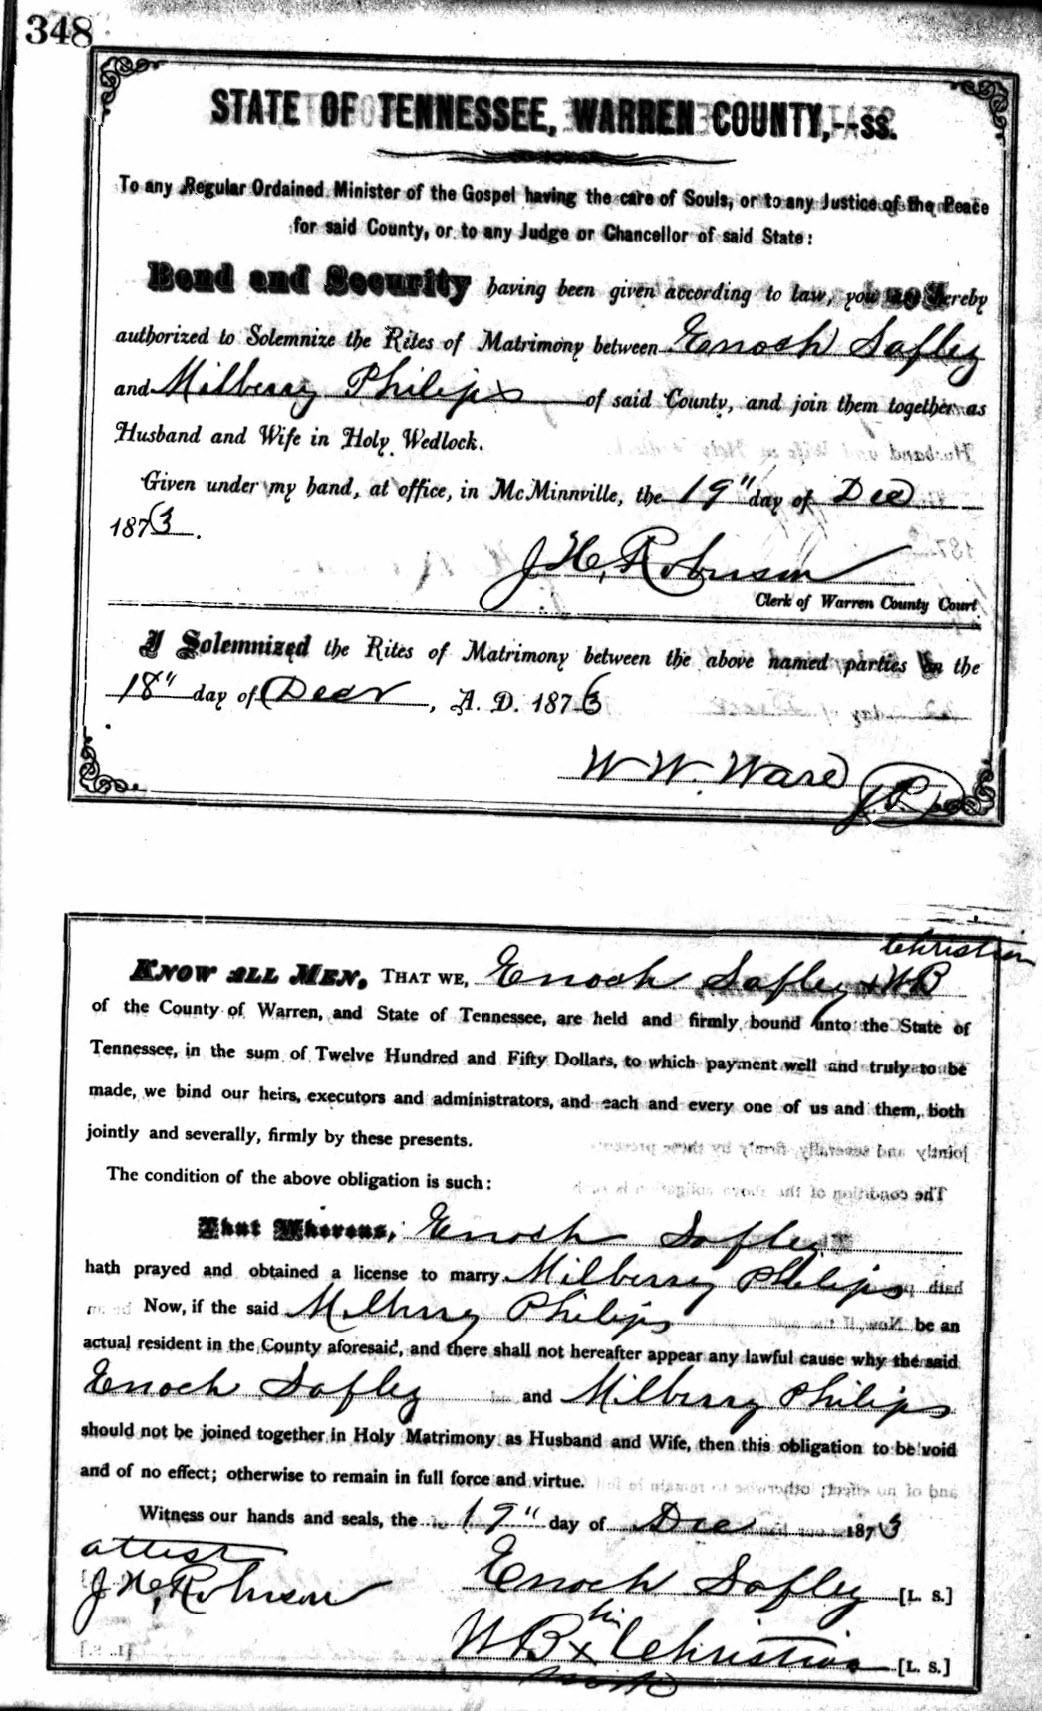 348
STATE OF TENNESSEE, WARREN COUNTY,--ss.
To any Regular Ordained Minister of the Gospel having the care of Souls, or to any Justice of the Peace
for said County, or to any Judge or Chancellor of said State:
Bond and Security having been given according to law, you are hereby
authorized to Solemnize the Rites of Matrimony between Enoch Safley
and Milberry Philips of said County, and join them together as
Husband and Wife in Holy Wedlock.
Given under my hand, at office, in McMinnville, the 19" day of Dec
1873.
J. H. Robinson
Clerk of Warren County Court
I Solemnized the Rites of Matrimony between the above named parties on the
18" day of Decr, A. D. 1873
W. W. Ware J.P.
Christian
KNOW ALL MEN, THAT WE, Enoch Safley & WB
of the County of Warren, and State of Tennessee, are held and firmly bound unto the State of
Tennessee, in the sum of Twelve Hundred and Fifty Dollars, to which payment well and truly to be
made, we bind our heirs, executors and administrators, and each and every one of us and them, both
jointly and severally, firmly by these presents.
The condition of the above obligation is such:
That Whereas, Enoch Safley
hath prayed and obtained a license to marry Milberry Philips
Now, if the said Milberry Philips be an
actual resident in the County aforesaid, and there shall not hereafter appear any lawful cause why the said
Enoch Safley and Milberry Philips
should not be joined together in Holy Matrimony as Husband and Wife, then this obligation to be void
and of no effect; otherwise to remain in full force and virtue.
Witness our hands and seals, the 19" day of Dec 1873
attest
J. H. Robinson
Enoch Safley [L. S.]
his
W B x Christian [L. S.]
mark